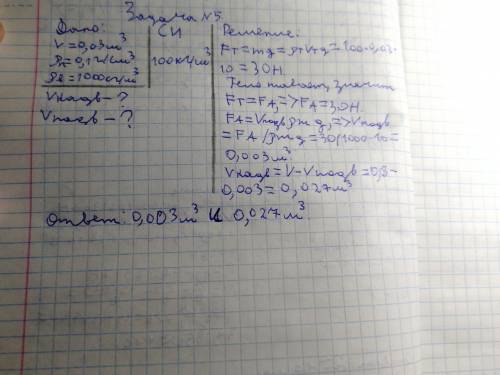 Задача №5.
Дано:
V=0,03м³
ρт=0,1г/см³
ρв=1000кг/м³
Vнадв-?
Vпогв-?
СИ
100кг/м³
Решение:
Fт=mg=ρтVтg=100·0,03·
10=30Н.
Тело плавает, значит
Fт=FA,=>FA=30Н.
FA=Vпогв ρж g,=>Vпогв
=FA/ρж g=30/1000·10=
0,003м³.
Vнадв=V-Vпогв=0,3-
0,003=0,027м³
Ответ: 0,003м³ и 0,027м³.